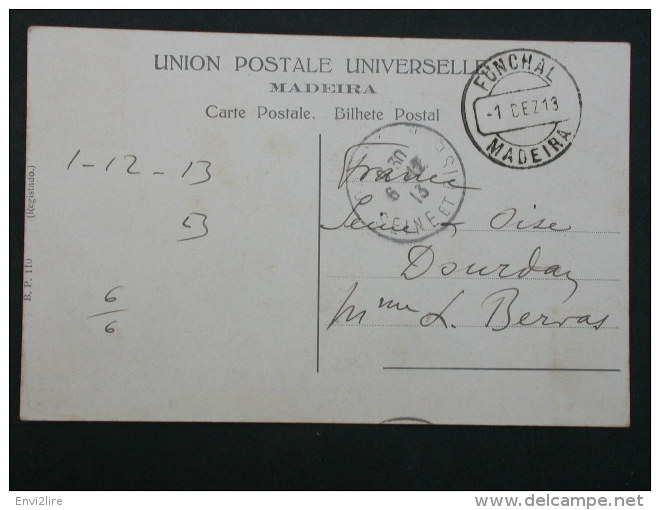 UNION POSTALE UNIVERSELLE
MADEIRA
Carte Postale. Bilhete Postal
FUNCHAL
-1 DEZ 13
MADEIRA
30
6 -12
13
SEINE ET OISE
1-12-13
6
6
France
Seine & Oise
Dourdan
Mme L. Bervas
B. P. 110 (Registado.)
Envi2lire
delcampe.net